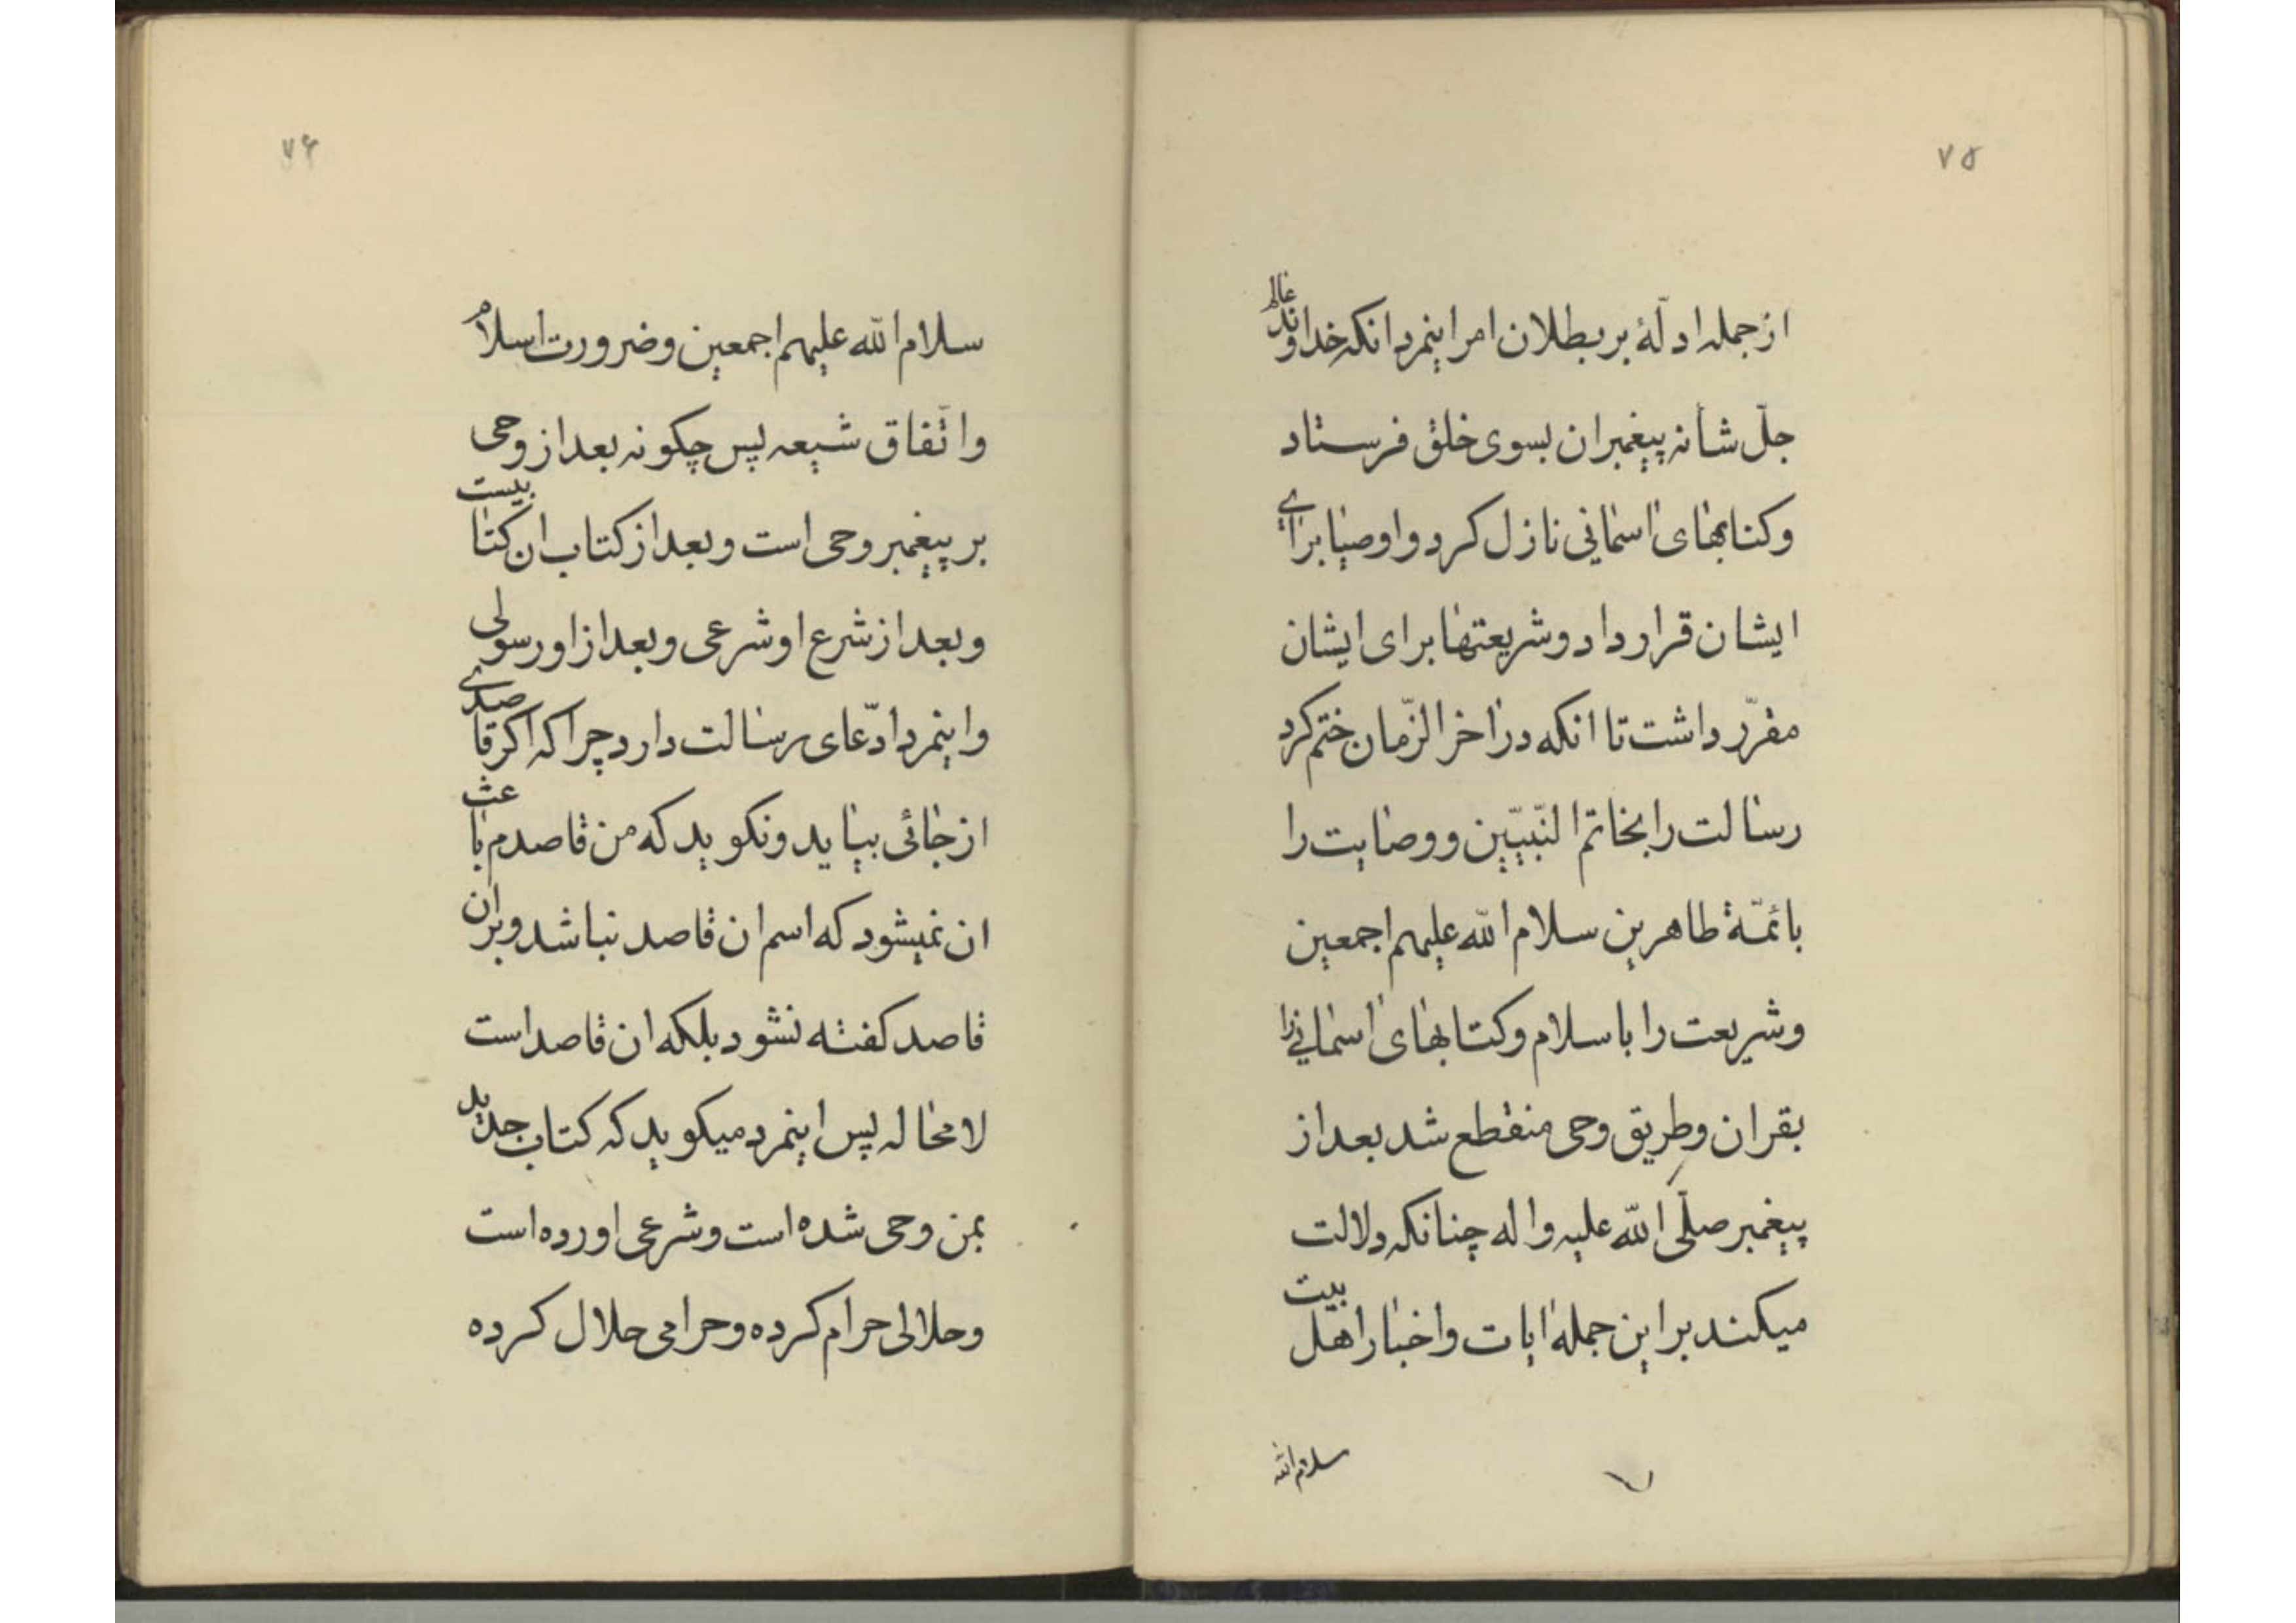 ۷۵
از جمله ادلّهٔ بر بطلان امر اینمرد انکه خداوند عالم
جلّ شأنه پیغمبران بسوی خلق فرستاد
و کتابهای اسمانی نازل کرد و اوصیا برای
ایشان قرار داد و شریعتها برای ایشان
مقرّر داشت تا انکه در اخر الزّمان ختم کرد
رسالت را بخاتم النّبیّین و وصایت را
بائمّهٔ طاهرین سلام اللّه علیهم اجمعین
و شریعت را باسلام و کتابهای اسمانی را
بقران و طریق وحی منقطع شد بعد از
پیغمبر صلّی اللّه علیه و اله چنانکه دلالت
میکند بر این جمله ایات و اخبار اهل بیت
سلام اللّه
۷۶
سلام اللّه علیهم اجمعین و ضرورت اسلام
و اتّفاق شیعه پس چکونه بعد از وحی
بر پیغمبر وحی است و بعد از کتاب ان کتابیست
و بعد از شرع او شرعی و بعد از او رسولی
و اینمرد ادّعای رسالت دارد چرا که اکر قاصدی
از جائی بیاید و نکوید که من قاصدم باعث
ان نمیشود که اسم ان قاصد نباشد و بر ان
قاصد کفته نشود بلکه ان قاصد است
لا محاله پس اینمرد میکوید که کتاب جدید
بمن وحی شده است و شرعی اورده است
و حلالی حرام کرده و حرامی حلال کرده